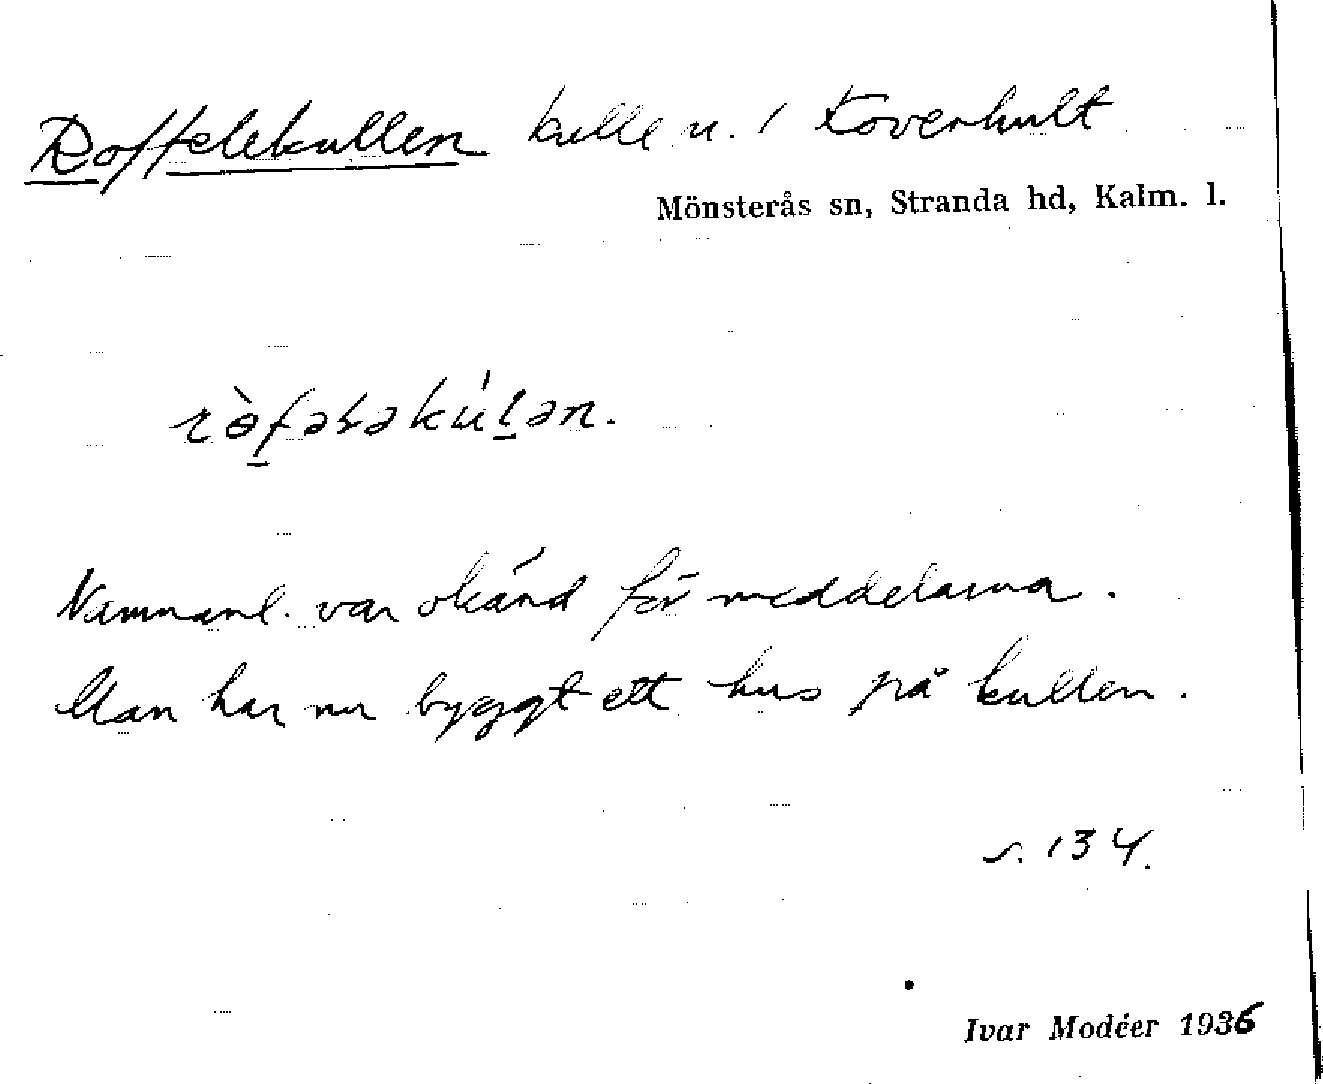 Roffelekullen kulle u. / Koverhult
Mönsterås sn, Stranda hd, Kalm. l.
Namnanl. var okänd för meddelarna.
Man har nu byggt ett hus på kullen.
s. 134.
Ivar Modéer 1936